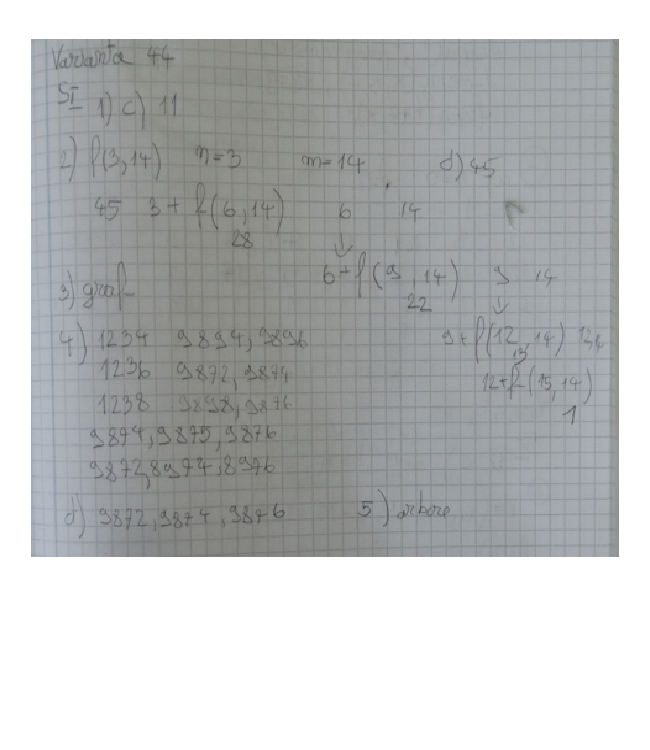 Varianta 44
SI 1) c) 11
2) f(3,14) n=3 m=14 d) 45
45 3+ f(6,14) 6 14
28
6+f(9,14) 9 14
22
3) graf
9+f(12,14) 12 14
13
12+f(15,14)
1
4) 1234 9894, 9896
1236 9872, 9874
1238 9898, 9876
9874, 9875, 9876
9872, 8974, 8976
d) 9872, 9874, 9876 5) arbore